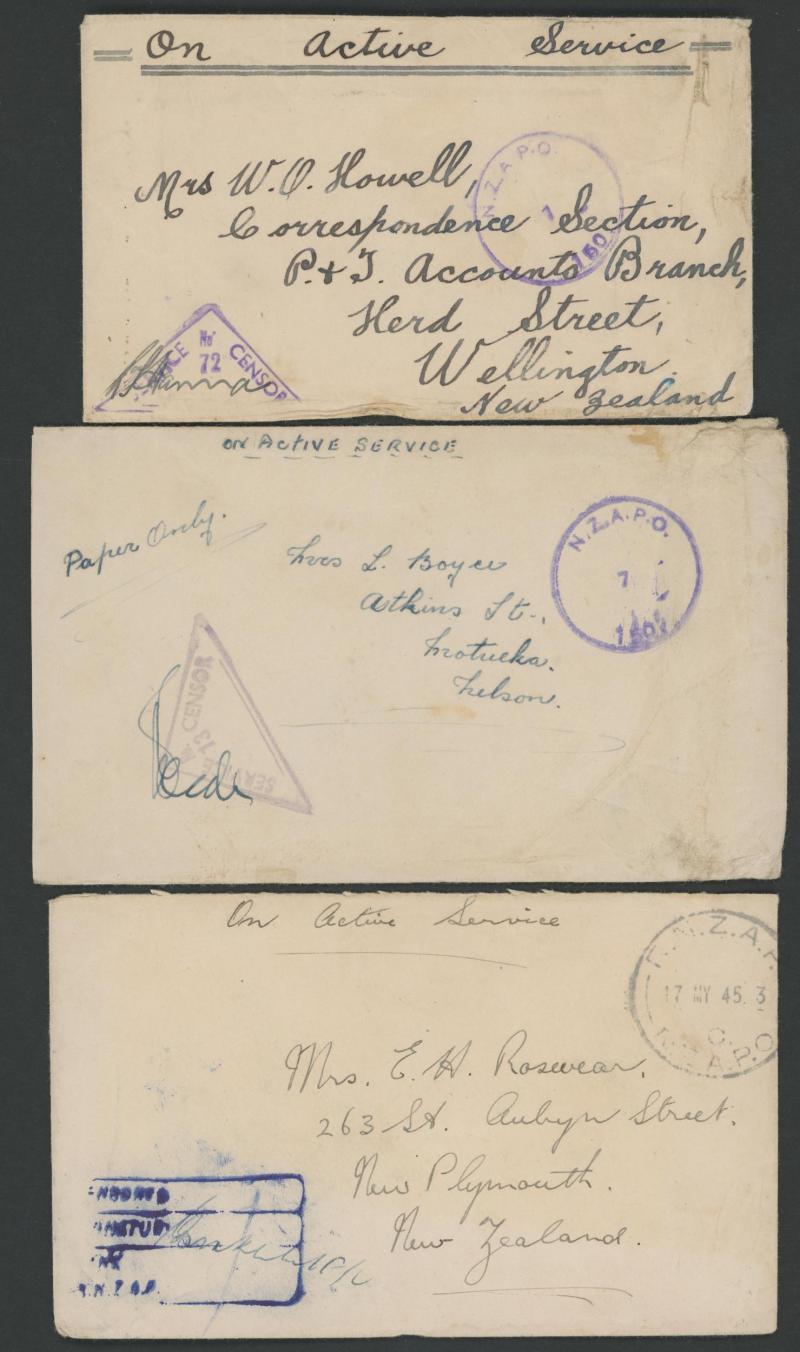 On Active Service
N.Z.A.P.O.
7
150
Mrs W.O. Howell,
Correspondence Section,
P. & T. Accounts Branch,
Herd Street,
Wellington.
New Zealand
No 72
CENSOR
ON ACTIVE SERVICE
Paper Only.
N.Z.A.P.O.
7
150
Mrs L. Boyce
Atkins St.,
Motueka.
Nelson.
SERVICE
13
CENSOR
On Active Service
R.N.Z.A.F.
17 MY 45. 3
C.P.O
N.Z.A.P.O
Mrs. E. H. Roswear.
263 St. Aubyn Street.
New Plymouth.
New Zealand.
R.N.Z.A.F.